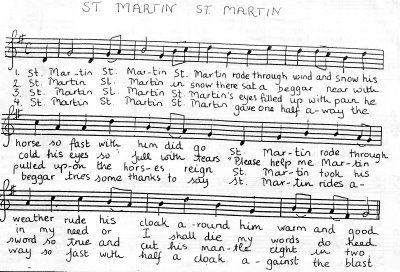 ST MARTIN ST. MARTIN
1. St. Mar-tin St. Mar-tin St. Martin rode through wind and snow his
2. St. Martin St. Martin in snow there sat a beggar near with
3. St. Martin St. Martin St. Martin's eyes filled up with pain he
4. St. Martin St. Martin St Martin gave one half a-way the
horse so fast with him did go St. Mar-tin rode through
cold his eyes so full with tears "Please help me Mar-tin
pulled up-on the hors-es reign St. Mar-tin took his
beggar tries some thanks to say St. Mar-tin rides a-
weather rude his cloak a-round him warm and good
in my need or I shall die my words do heed
sword so true and cut his man-tle right in two
way so fast with half a cloak a-gainst the blast